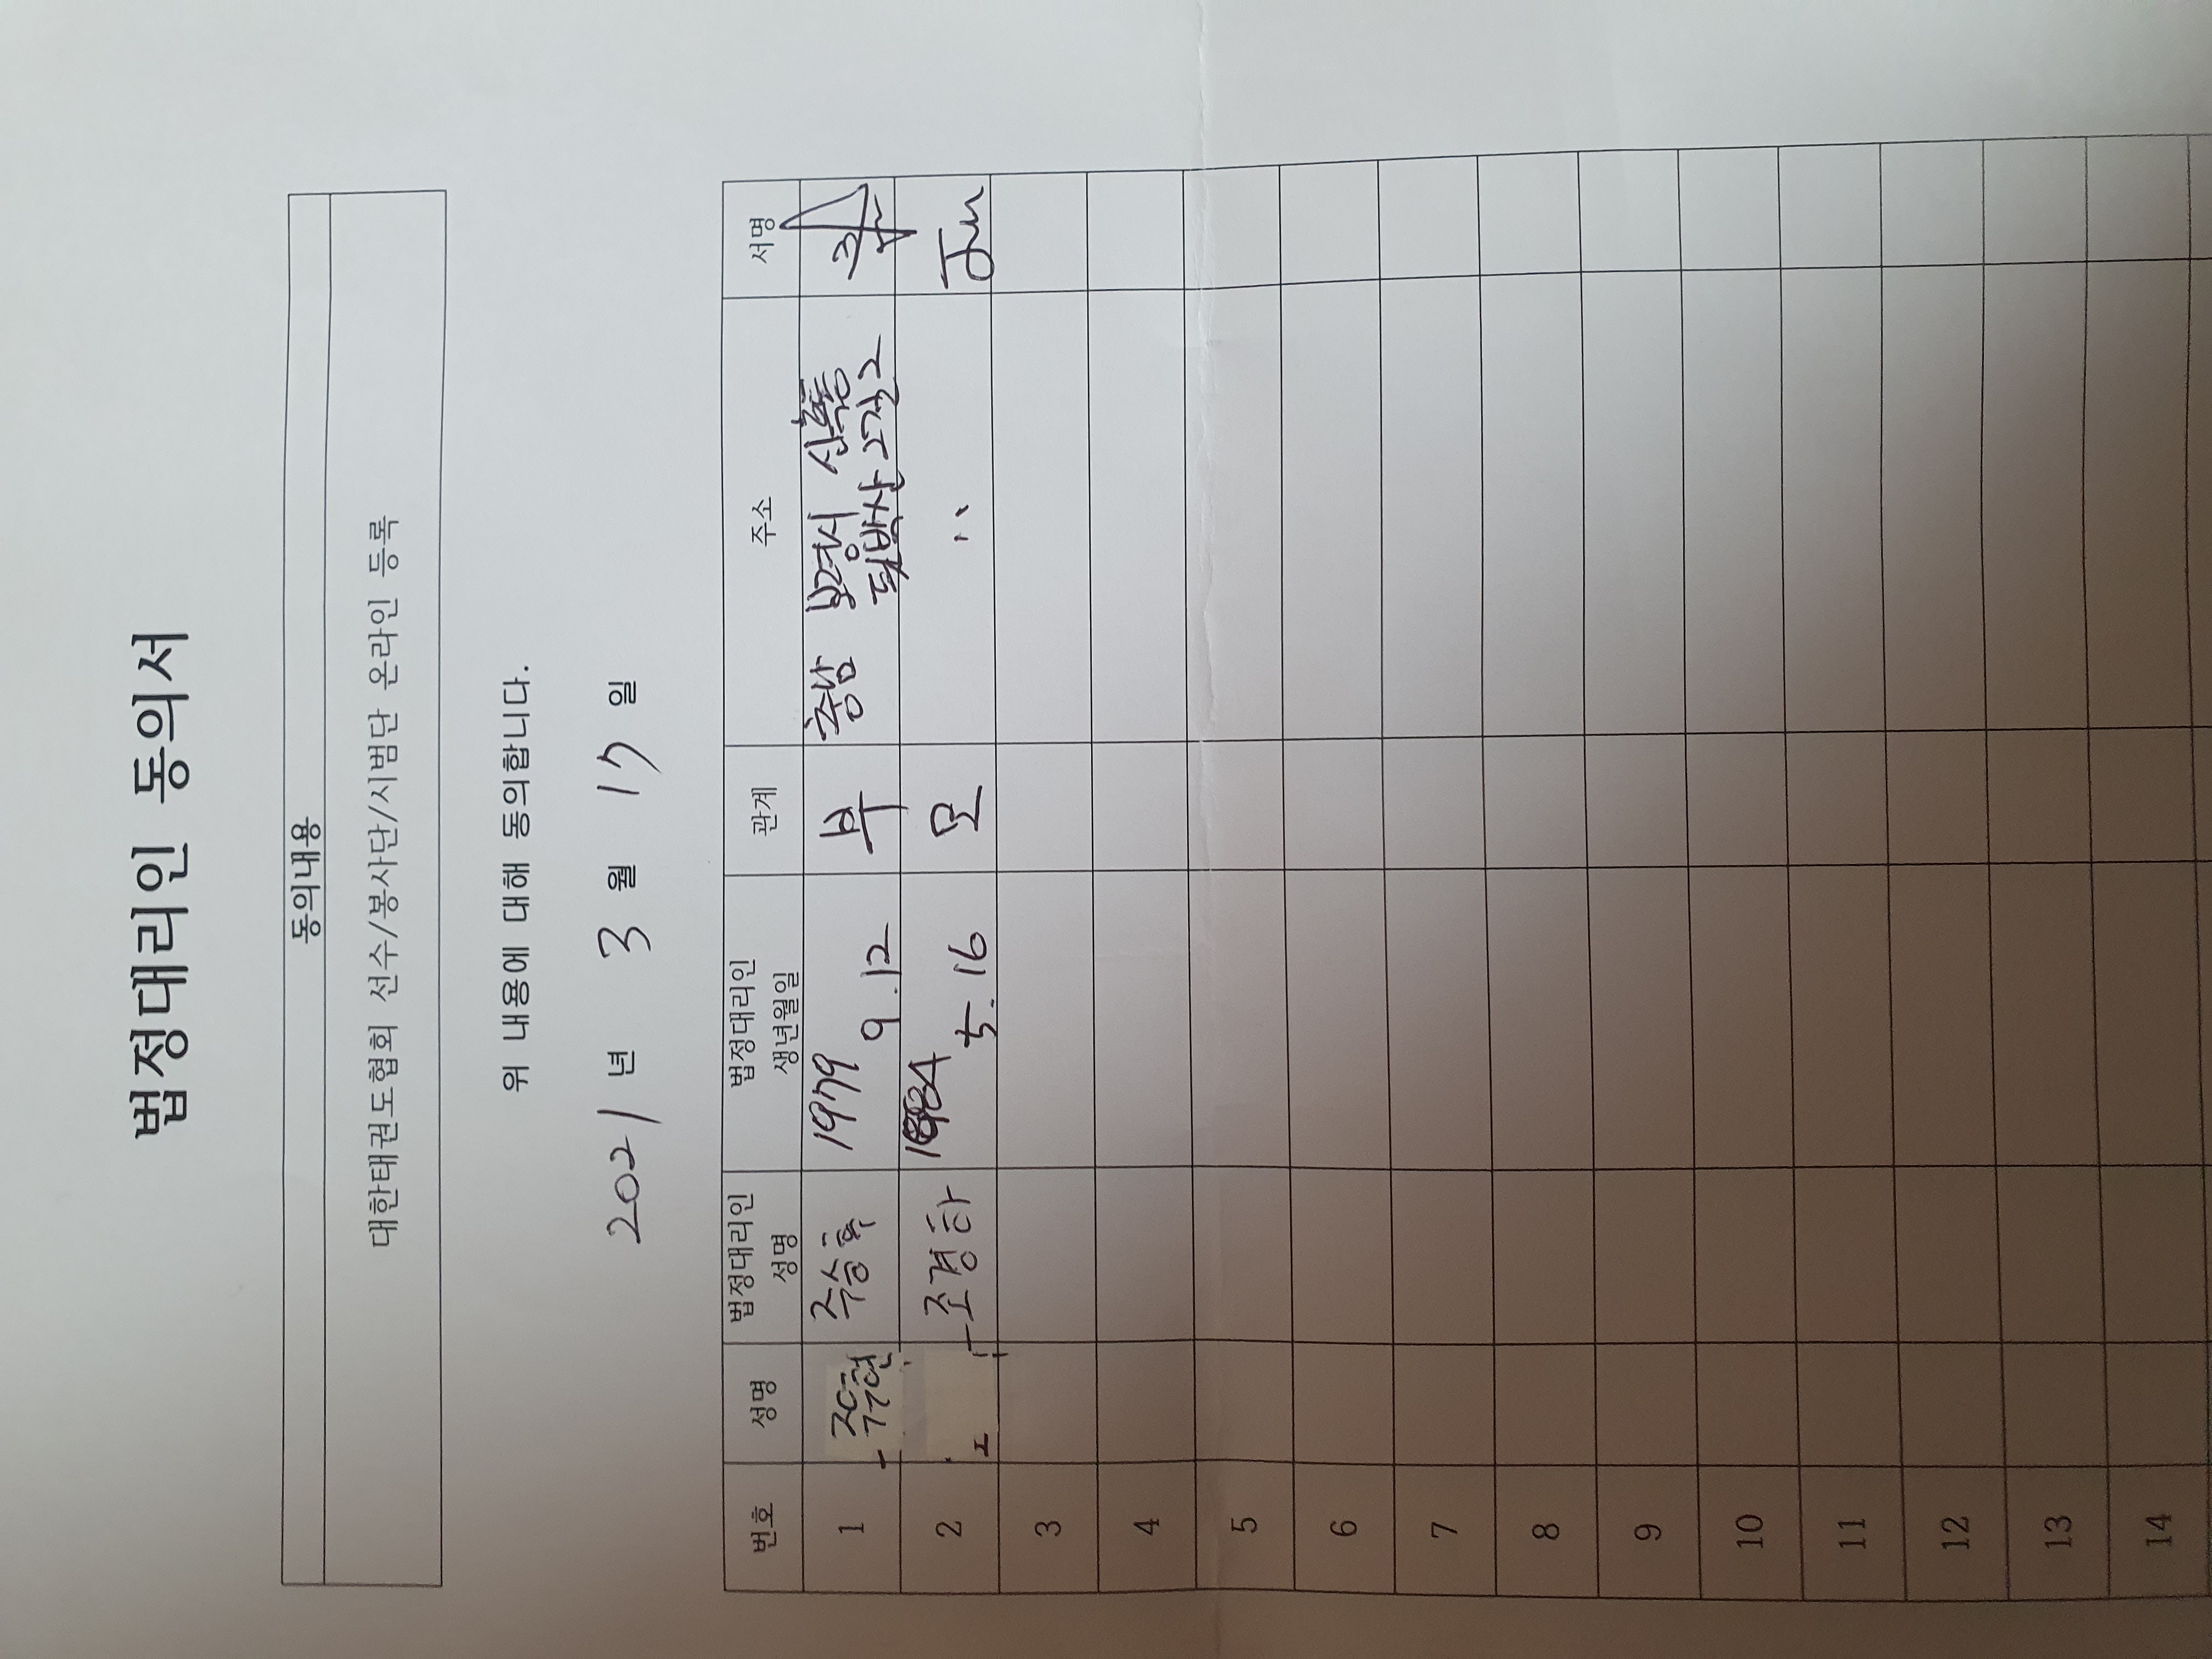 법정대리인 동의서
동의내용
대한태권도협회 선수/봉사단/시범단 온라인 등록
위 내용에 대해 동의합니다.
2021 년 3 월 17 일
번호 성명 법정대리인 성명 법정대리인 생년월일 관계 주소 서명
1 주승혁 1979 9.12 부 충남 보령시 신흑동
2 조경하 1984 5.16 모 〃 Jm
3
4
5
6
7
8
9
10
11
12
13
14